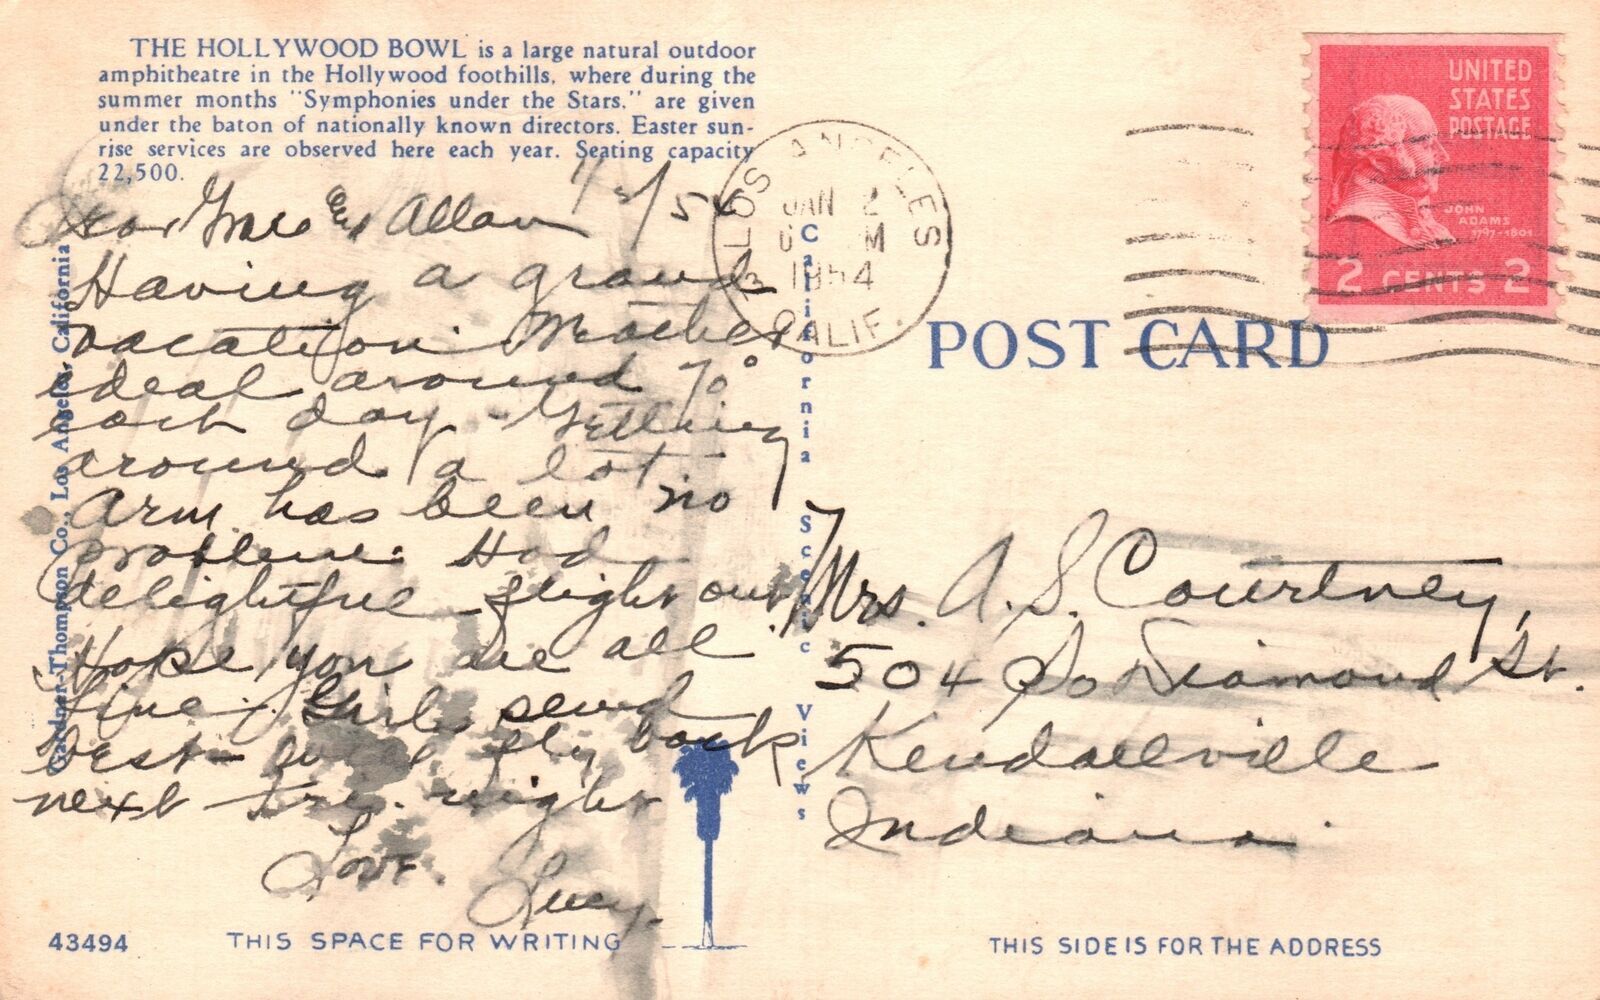 THE HOLLYWOOD BOWL is a large natural outdoor
amphitheatre in the Hollywood foothills, where during the
summer months "Symphonies under the Stars," are given
under the baton of nationally known directors. Easter sun-
rise services are observed here each year. Seating capacity
22,500.
1/2/54
Dear Grace & Allan
Having a grand
vacation.
ideal around 70°
each day - Getting
around a lot.
Arm has been no
problem. Had
delightful flight out.
Hope you are all
fine. Girls send
best - will fly back
next Fri. night
Love.
Lucy.
Gardner-Thompson Co., Los Angeles, California
California Scenic Views
LOS ANGELES
JAN 2
M
1954
CALIF.
UNITED
STATES
POSTAGE
JOHN
ADAMS
1797-1801
2 CENTS 2
POST CARD
Mrs. A. S. Courtney,
504 So Diamond St.
Kendallville
Indiana.
43494
THIS SPACE FOR WRITING
THIS SIDE IS FOR THE ADDRESS